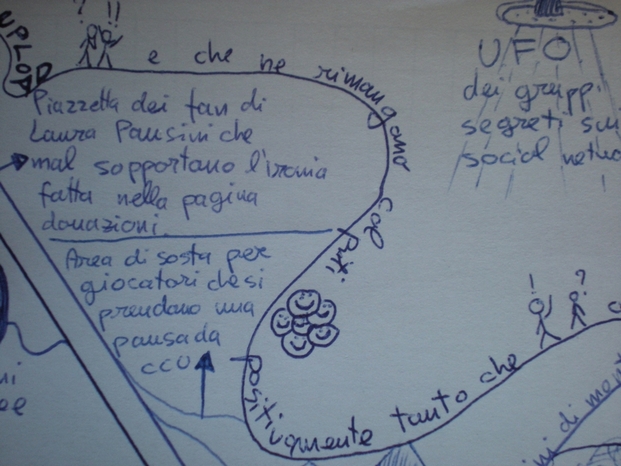 e che ne rimangano
colpiti
positivamente tanto che
Piazzetta dei fan di
Laura Pausini che
mal sopportano l'ironia
fatta nella pagina
donazioni.
Area di sosta per
giocatori che si
prendono una
pausa da
CCU
UFO
dei gruppi
segreti sui
social netwo
! ?
? !!